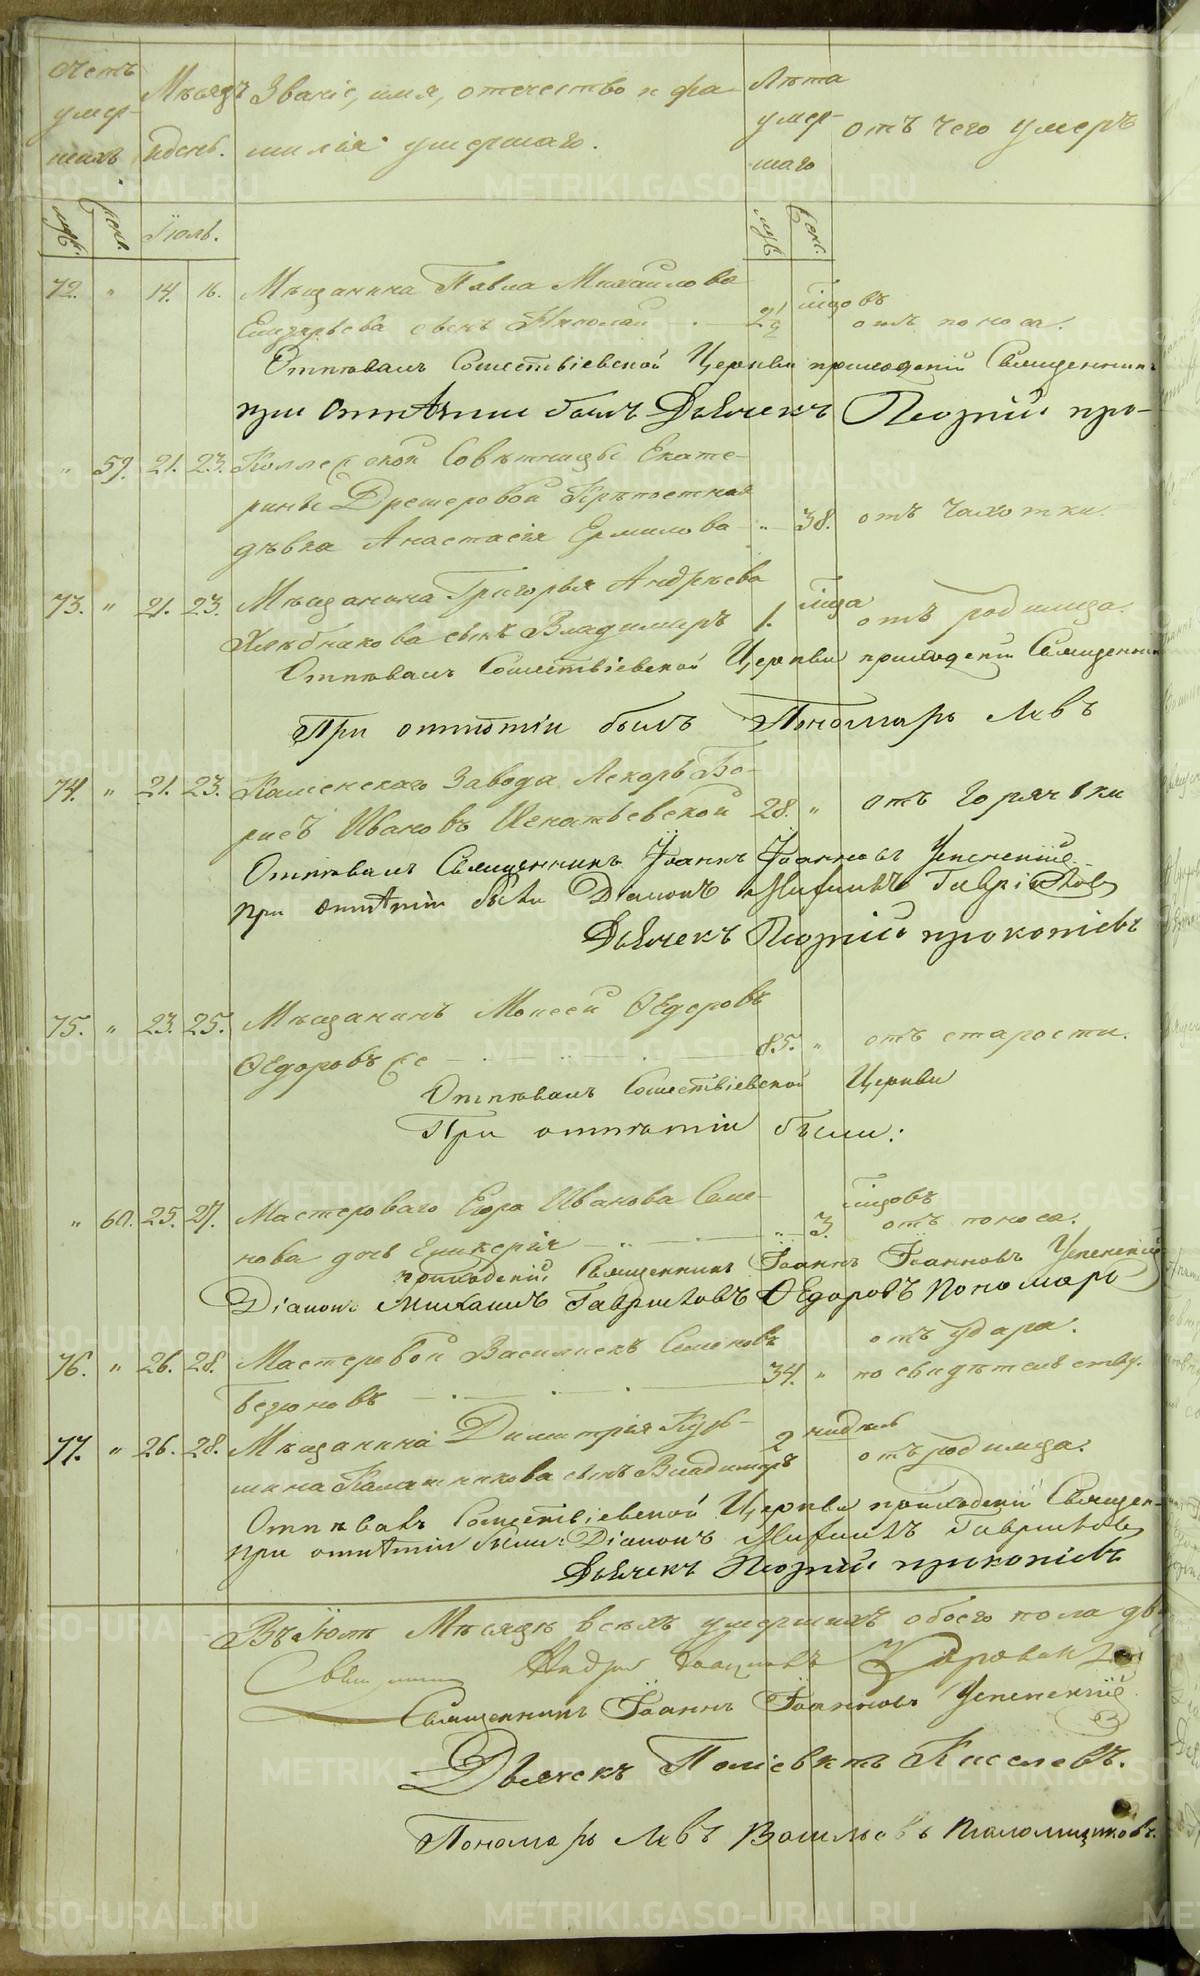 Счетъ умер- шихъ
Мѣсяцъ и день.
Званіе, имя, отечество и фа-
милія умершаго.
Лѣта умер- шаго
отъ чего умеръ
муж. женс. Іюль. муж. женс.
72. " 14. 16. Мѣщанина Павла Михайлова
сынъ Николай 2½ мѣсяцовъ отъ поноса.
Отпѣвалъ Сошествіевской Церкви приходскій Священникъ
при отпѣтіи былъ Дьячекъ Георгій про-
" 59. 21. 23. Коллежской Совѣтницы Екате-
рины Дрешеровой Крѣпостная
дѣвка Анастасія Ермилова " 38. отъ чахотки.
73. " 21. 23. Мѣщанина Григорья Андрѣева
Хлѣбникова сынъ Владимиръ 1. мѣсяца отъ родимца.
Отпѣвалъ Сошествіевской Церкви приходскій Священник
При отпѣтіи былъ Пономарь Левъ
74. " 21. 23. Каменскаго Завода Лекарь Бо-
рисъ Ивановъ 28. " отъ горячки
Отпѣвалъ Священникъ Іоаннъ Іоанновъ Успенскій
при отпѣтіи были Діаконъ Михаилъ Гавриловъ
Дьячекъ Георгій прокопіевъ
75. " 23. 25. Мѣщанинъ Моисей Ѳедоровъ
85. " отъ старости.
Отпѣвалъ Сошествіевской Церкви
При отпѣтіи были:
" 60. 25. 27. Мастероваго Егора Иванова Семе-
нова дочь " 3. мѣсяцовъ отъ поноса.
приходскій Священникъ Іоаннъ Іоанновъ Успенскій
Діаконъ Михаилъ Гавриловъ Ѳедоровъ Пономарь
76. " 26. 28. Мастеровой Василискъ Семеновъ
34. " отъ удара. по свидѣтельству.
77. " 26. 28. Мѣщанина Димитрія Кузь-
мина Калашникова сынъ Владимиръ 2 недѣль отъ родимца.
Отпѣвалъ Сошествіевской Церкви приходскій Священ-
при отпѣтіи были: Діаконъ Михаилъ Гавриловъ
Дьячекъ Георгій прокопіевъ
Въ Іюлѣ Мѣсяцѣ всѣхъ умершихъ обоего пола
Священникъ Іоаннъ Іоанновъ Успенскій
Дьячекъ Поліевктъ Киселевъ.
Пономарь Левъ Васильевъ
METRIKI.GASO-URAL.RU